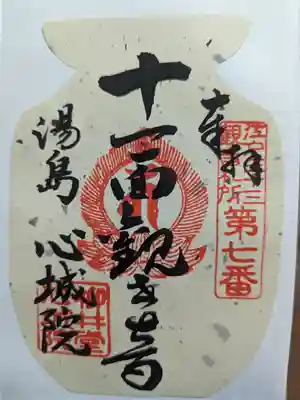 奉拝
江戸三十三
観音札所
第七番
十一面観世音
湯島 心城院
柳井堂